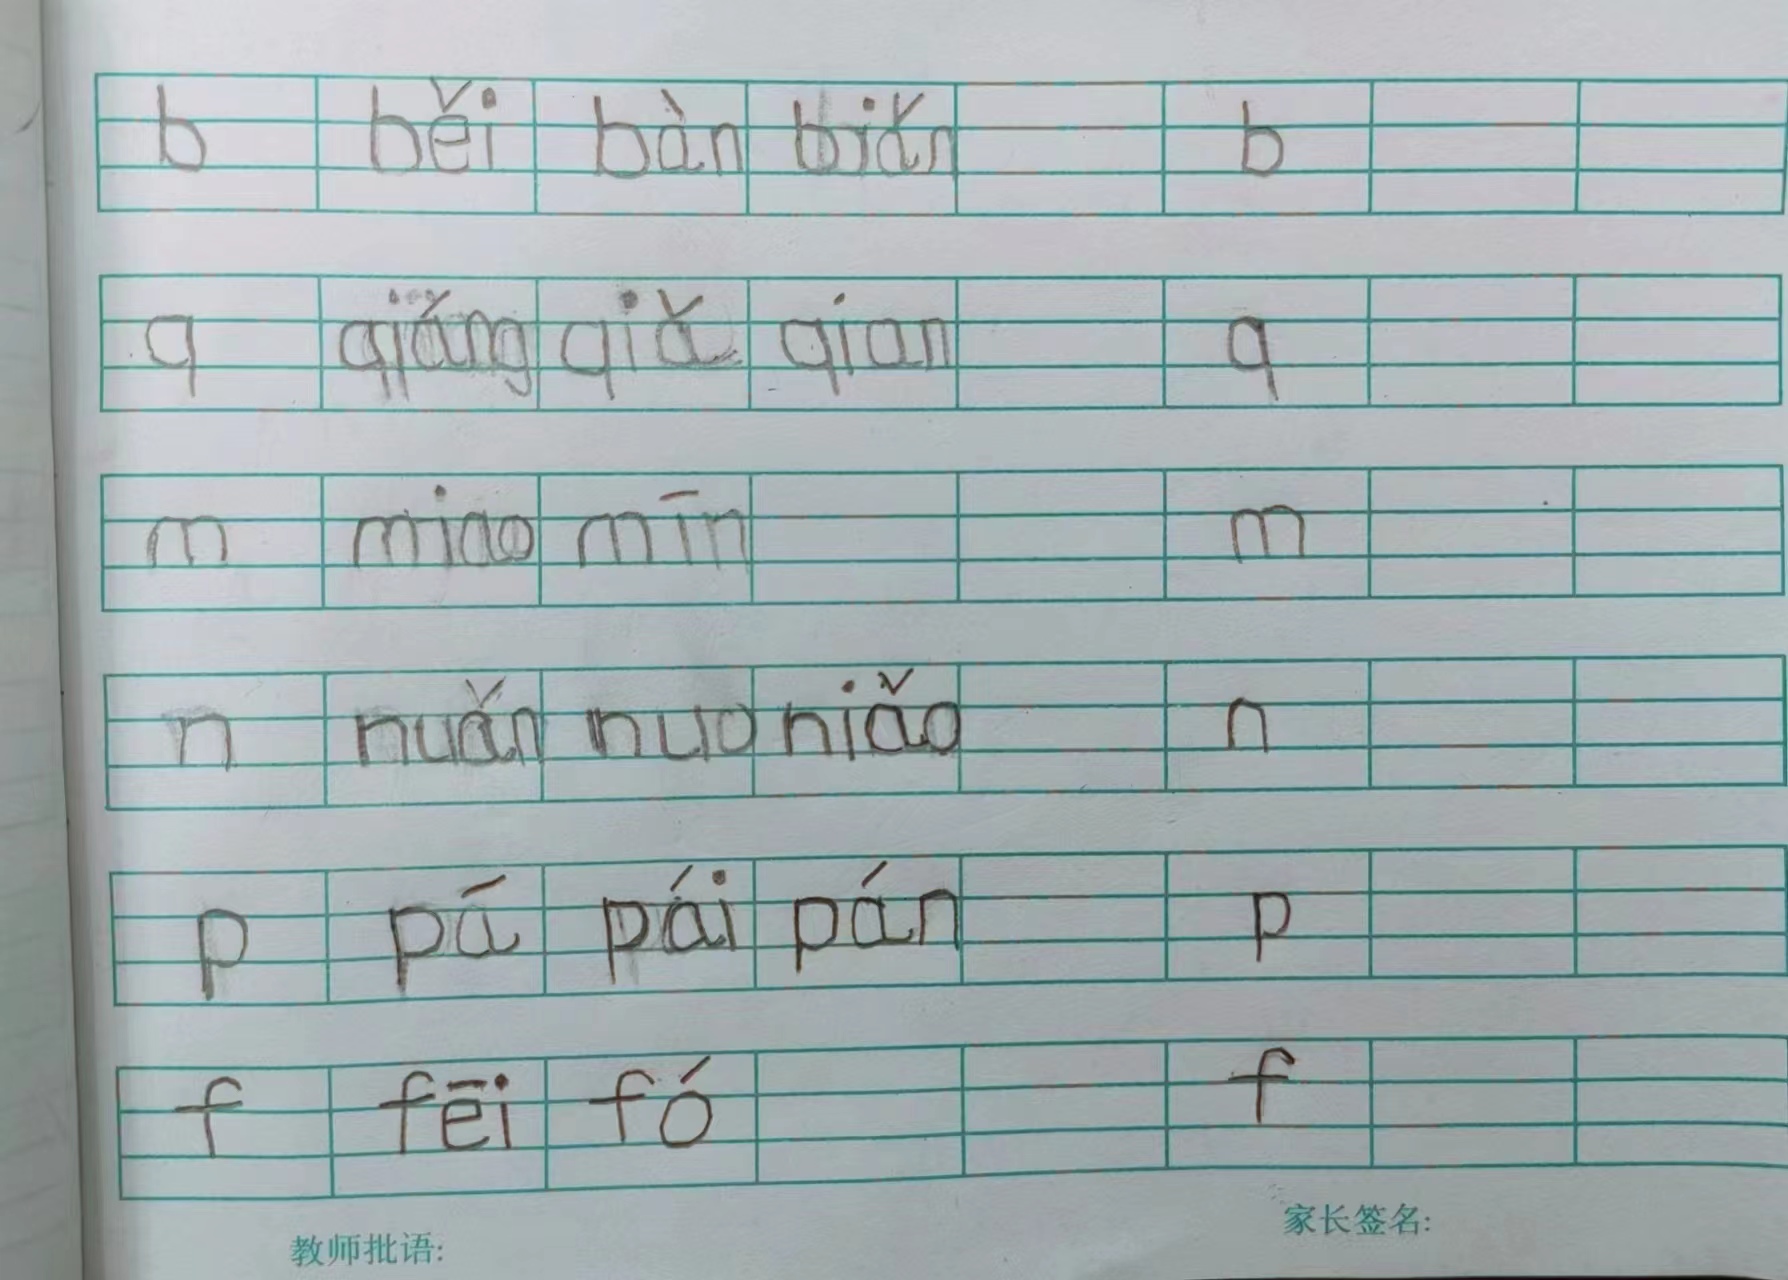 b běi bàn biǎn b
q qiǎng qiǎ qian q
m miao mīn m
n nuǎn nuo niǎo n
p pá pái pán p
f fēi fó f
教师批语: 家长签名: